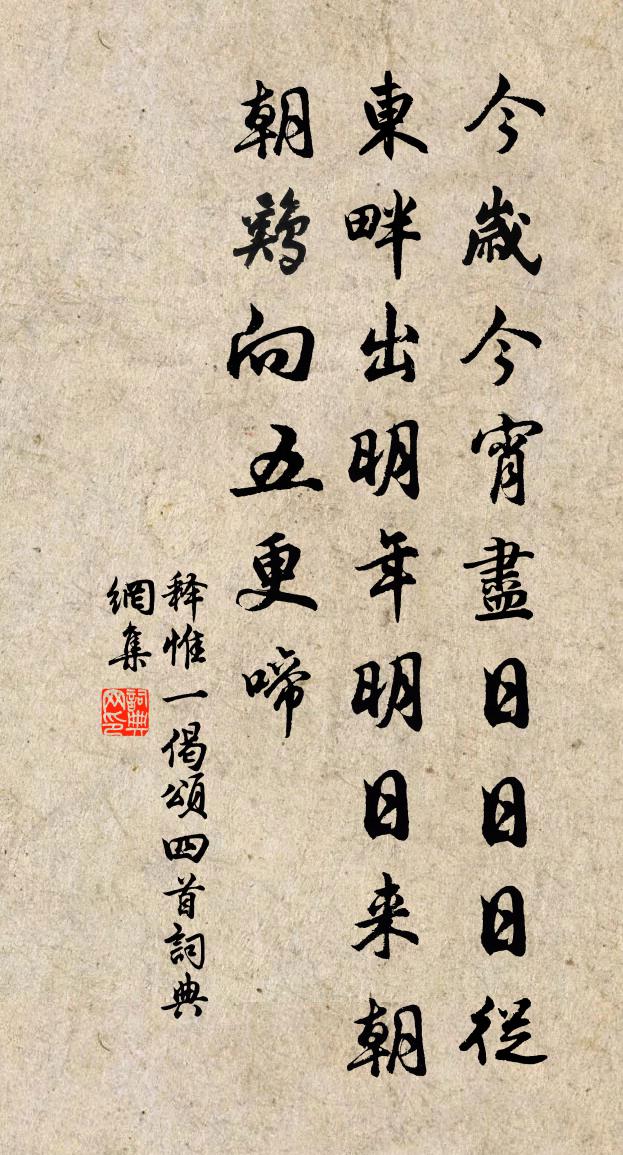 今歲今宵盡日日日從
東畔出明年明日来朝
朝鷄向五更啼
释惟一偈頌四首詞典
網集
詞典
网印